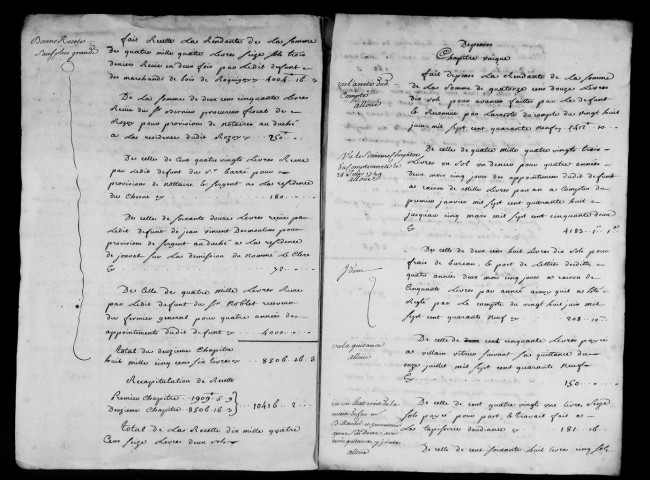 Bonne Recette
fait Recette La Rendante de La somme
de quatre mille quatre Livres seize sols trois
deniers Reçue en deux fois par Ledit defunt
des marchands de bois de 4004 . 16 . 3
De La somme de deux cens cinquante Livres
Reçue du Sr procureur fiscal de
pour provisions de notaire au duché
a La residence dudit 250
De celle de Cent quatre vingt Livres Reçue
par Ledit defunt du Sr Barré pour
provisions de notaire et sergent a La residence
du Chesne 180
De celle de soixante douze Livres reçue par
Ledit defunt de jean vincent Desmoulins pour
provisions de sergent au duché a La residence
de sur La demission du nommé Le Clerc
72
De Celle de quatre mille Livres Reçue
par Ledit defunt du Sr Noblet receveur
du fermier general pour quatre années des
appointements dudit defunt 4000
Total du deuxieme Chapitre
huit mille cinq cens six livres 8506 . 16 . 3
Recapitulation de Recette
Premier Chapitre 1909 . 5 . 9
Deuxieme Chapitre 8506 . 16 . 3
10416 . 2
Total de La Recette dix mille quatre
Cens seize Livres deux sols
Depenses
Chapitre unique
vu l'arreté dud
Compte
alloué
fait depense La Rendante de La somme
de La somme de quatorze cens douze Livres
dix sols pour avances faites par Le defunt
Le Reconnue par L'arresté du compte du vingt huit
juin mil sept cent quarante neuf 1412 . 10
alloué
De celle de quatre mille quatre vingts trois
Livres un sol un denier pour quatre années
deux mois cinq jours des appointements dudit defunt
a raison de Mille Livres par an a Compter du
premier janvier mil sept cent quarante huit
jusqu'au cinq mars mil sept cent cinquante deux
4183 . 1 . 1
Idem
De celle de deux cens huit Livres dix sols pour
frais de bureau, et port de Lettres desdittes
quatre années deux mois cinq jours a raison de
Cinquante Livres par année ainsy quil a été
Reglé par Le compte du vingt huit juin mil
sept cent quarante neuf 208 . 10
vu la quittance
alloué
De celle de cent cinquante Livres payée
a villain vitrier suivant sa quittance du
onze juillet mil sept cent quarante neuf
150
alloué
De celle de cent quatre vingt une Livre seize
sols payée pour port, et travail fait a
La tapisserie 181 . 16
De celle de cent soixante huit livres cinq sols